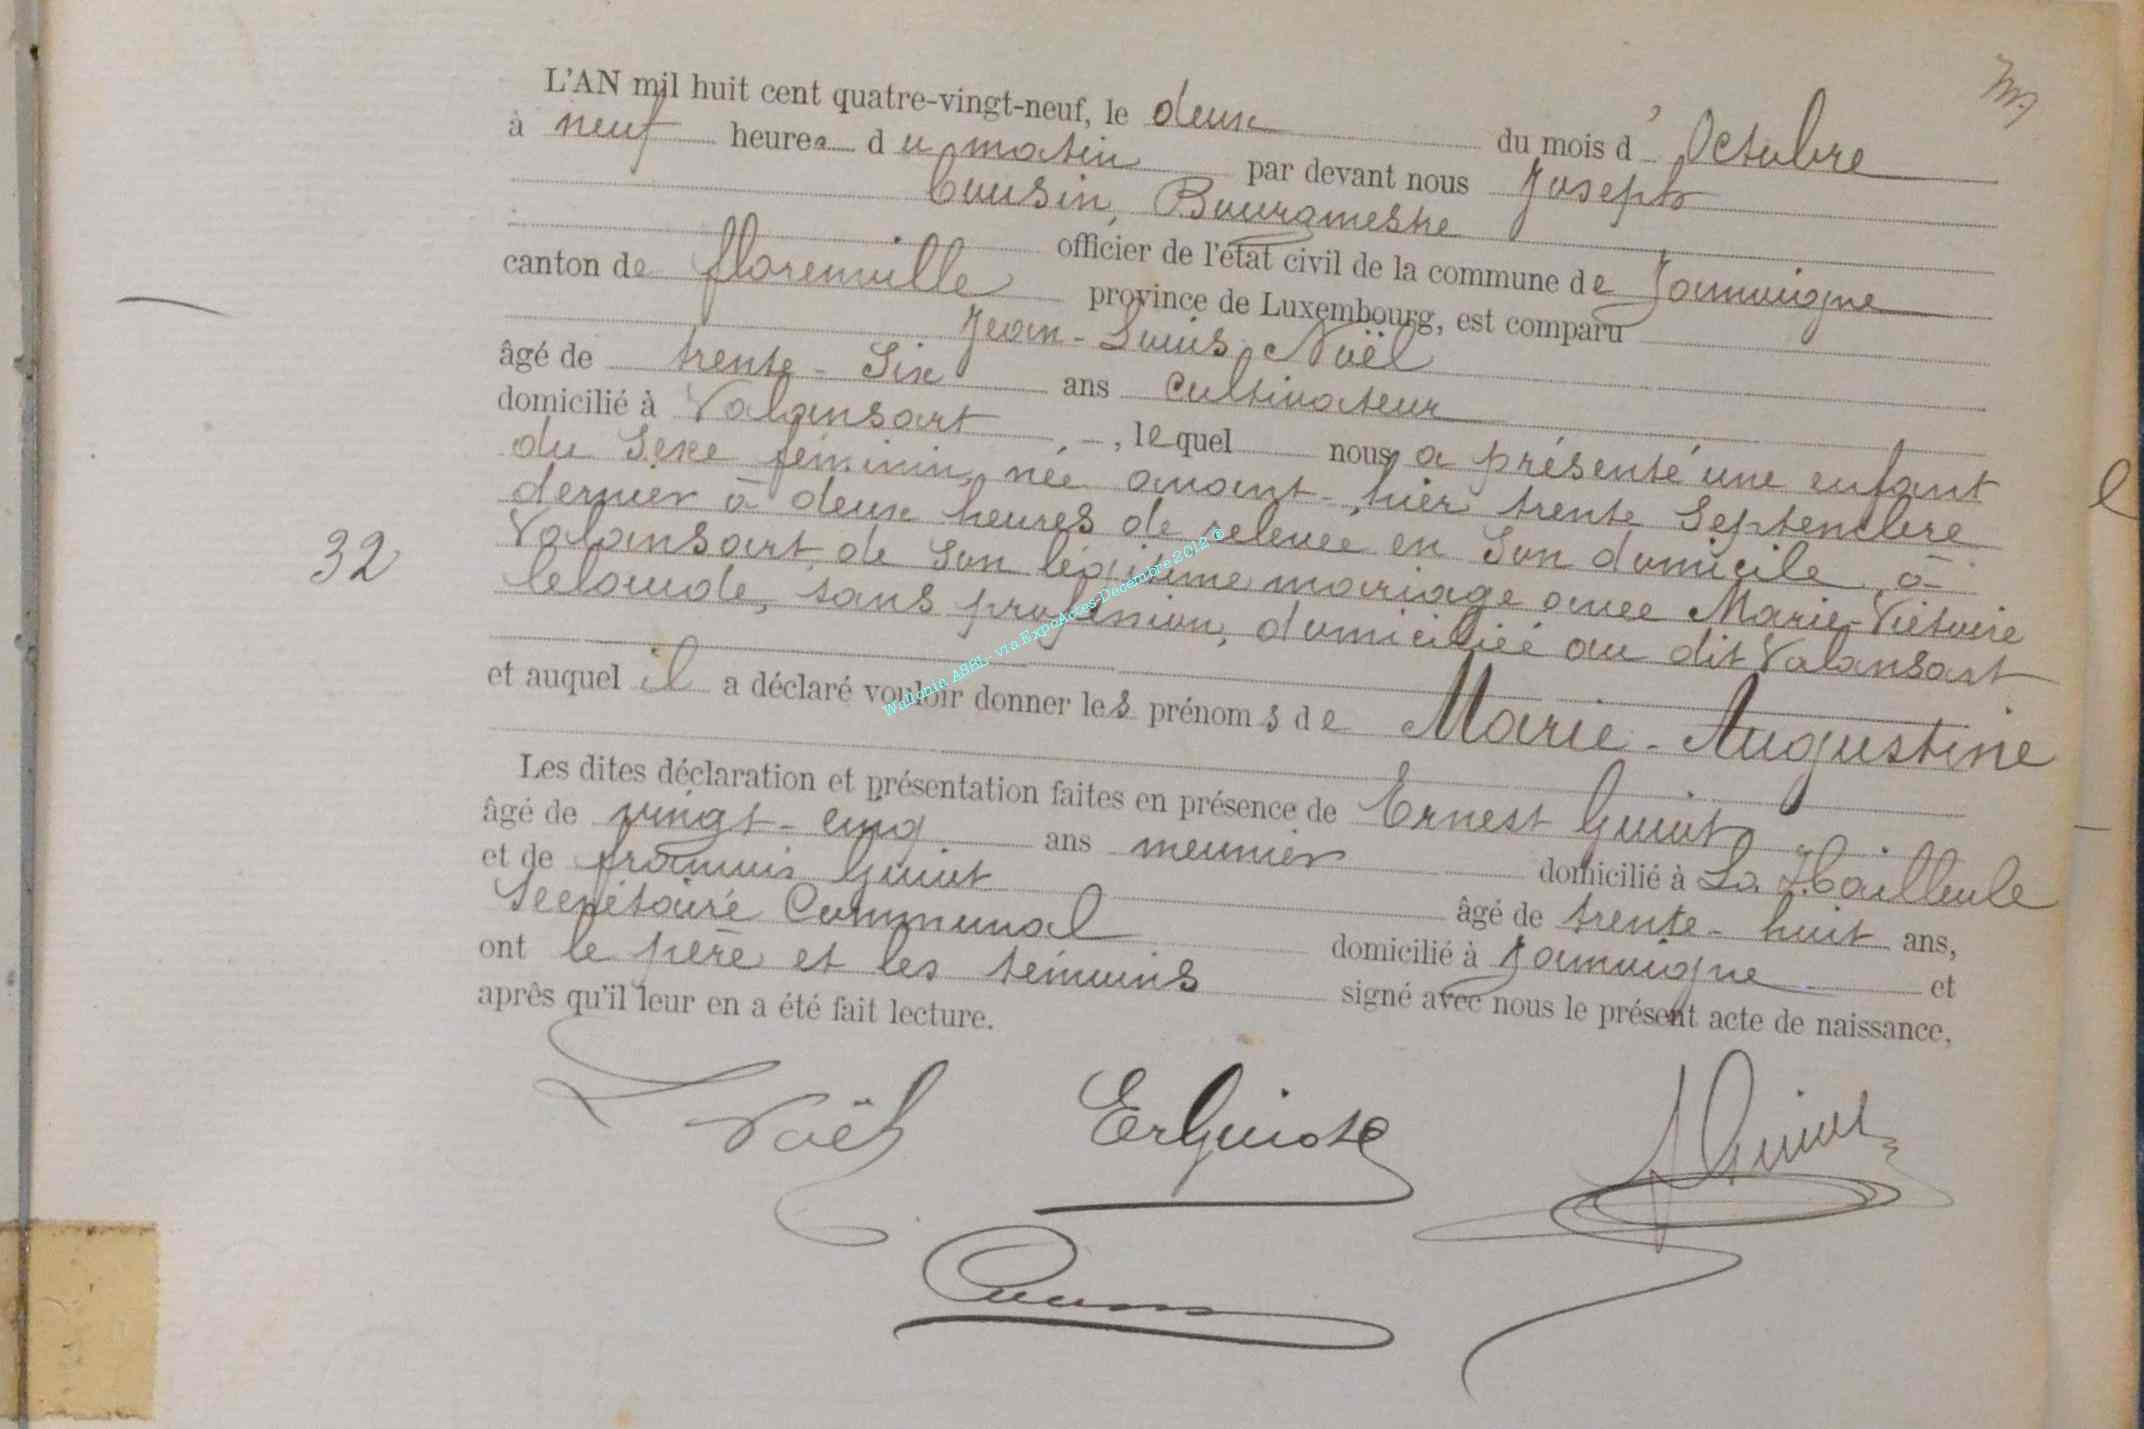 L'AN mil huit cent quatre-vingt-neuf, le deux du mois d' Octobre
à neuf heures du matin par devant nous Joseph
Cousin, Bourgmestre
officier de l'état civil de la commune de Jamoigne
canton de florenville province de Luxembourg, est comparu
Jean-Louis Noël
âgé de trente-Six ans cultivateur
domicilié à Valansart, lequel nous a présenté une enfant
du Sexe féminin, née avant-hier trente Septembre
dernier à deux heures de relevée en Son domicile à
Valansart, de Son légitime mariage avec Marie-Victoire
sans profession, domiciliée au dit Valansart
et auquel il a déclaré vouloir donner les prénoms de Marie-Augustine
Les dites déclaration et présentation faites en présence de Ernest Guiot
âgé de vingt-cinq ans meunier domicilié à La Hailleule
et de françois Guiot âgé de trente-huit ans,
Secrétaire Communal domicilié à Jamoigne et
ont le père et les témoins signé avec nous le présent acte de naissance,
après qu'il leur en a été fait lecture.
32
Noël ErGuiot Guiot
Cousin
via ExpoActes-Décembre 2012 ©